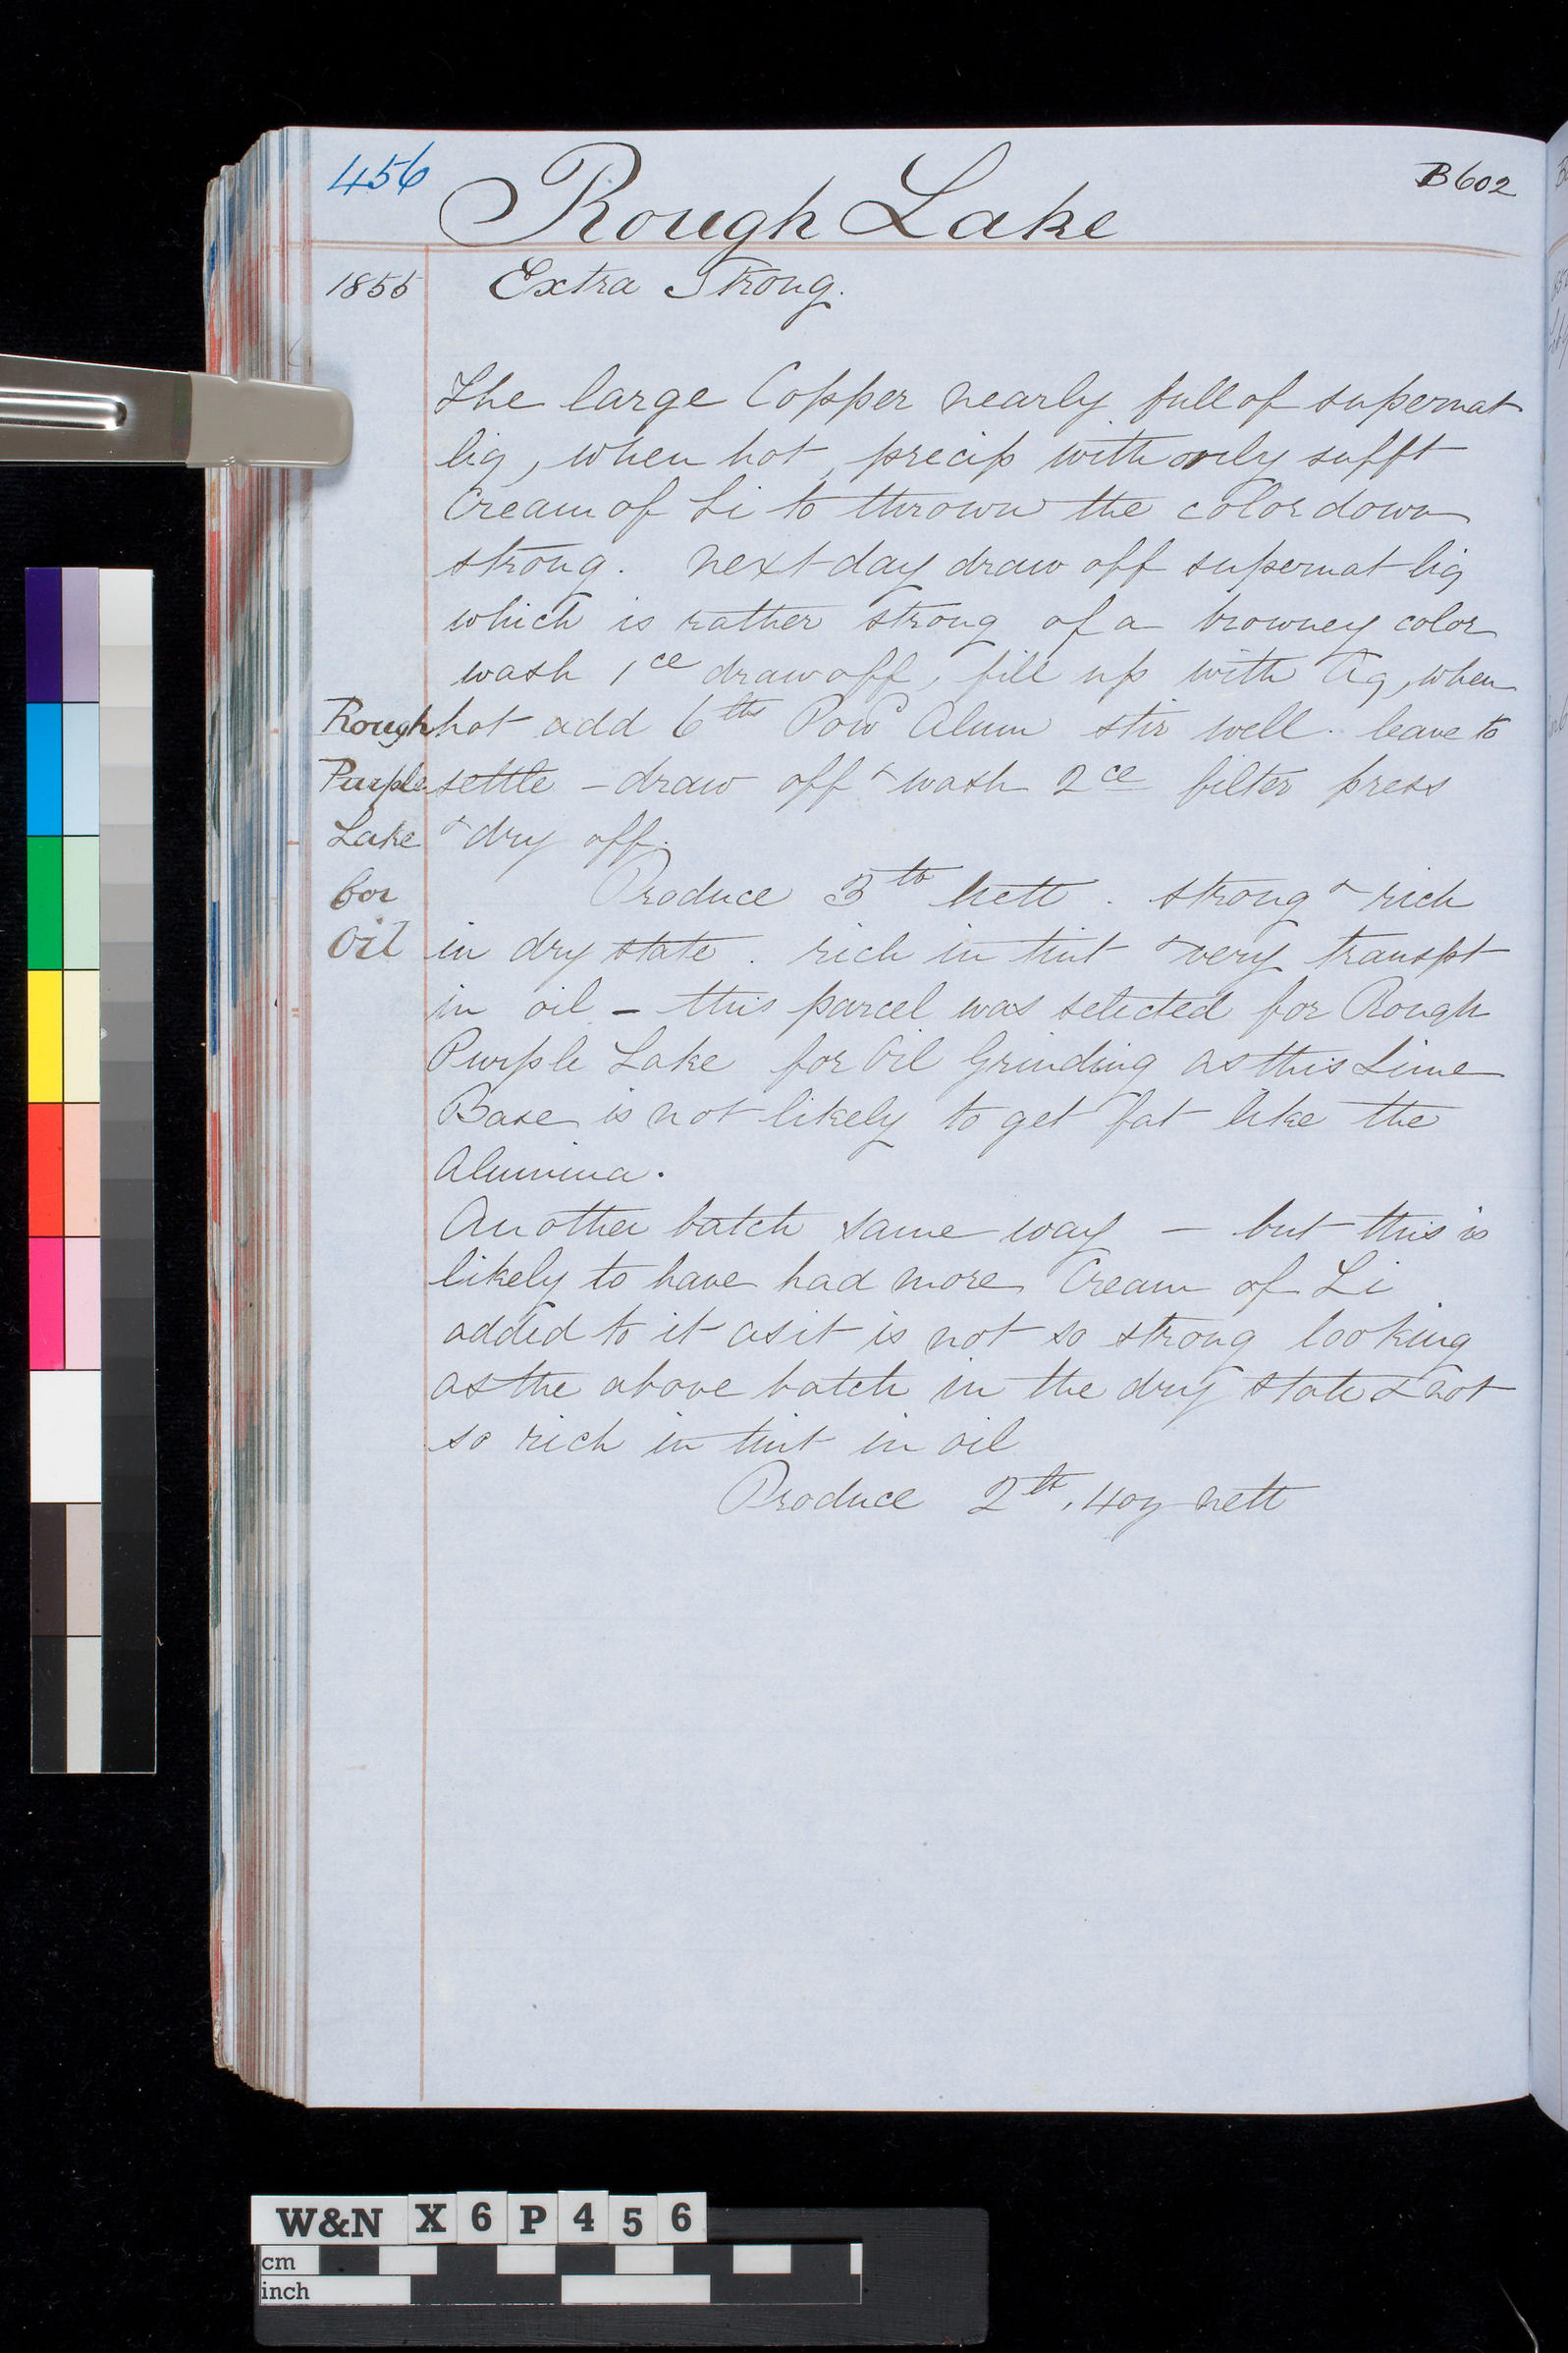 456 Rough Lake B602
1855 Extra Strong.
The large Copper nearly full of supernat
liq, when hot, precip with only sufft
Cream of Li to thrown the color down
strong. next day draw off supernat liq
which is rather strong of a browney color
wash 1ce draw off, fill up with Aq, when
Rough hot add 6 lbs Powd Alum stir well. leave to
Purple settle - draw off & wash 2ce filter press
Lake & dry off.
for Produce 3 lb nett. strong & rich
Oil in dry state. rich in tint & very transpt
in oil - this parcel was selected for Rough
Purple Lake for Oil Grinding as this Lime
Base is not likely to get fat like the
Alumina.
Another batch same way - but this is
likely to have had more Cream of Li
added to it as it is not so strong looking
as the above batch in the dry state & not
so rich in tint in oil
Produce 2 lb. 4oz nett
W&N X6P456
cm
inch